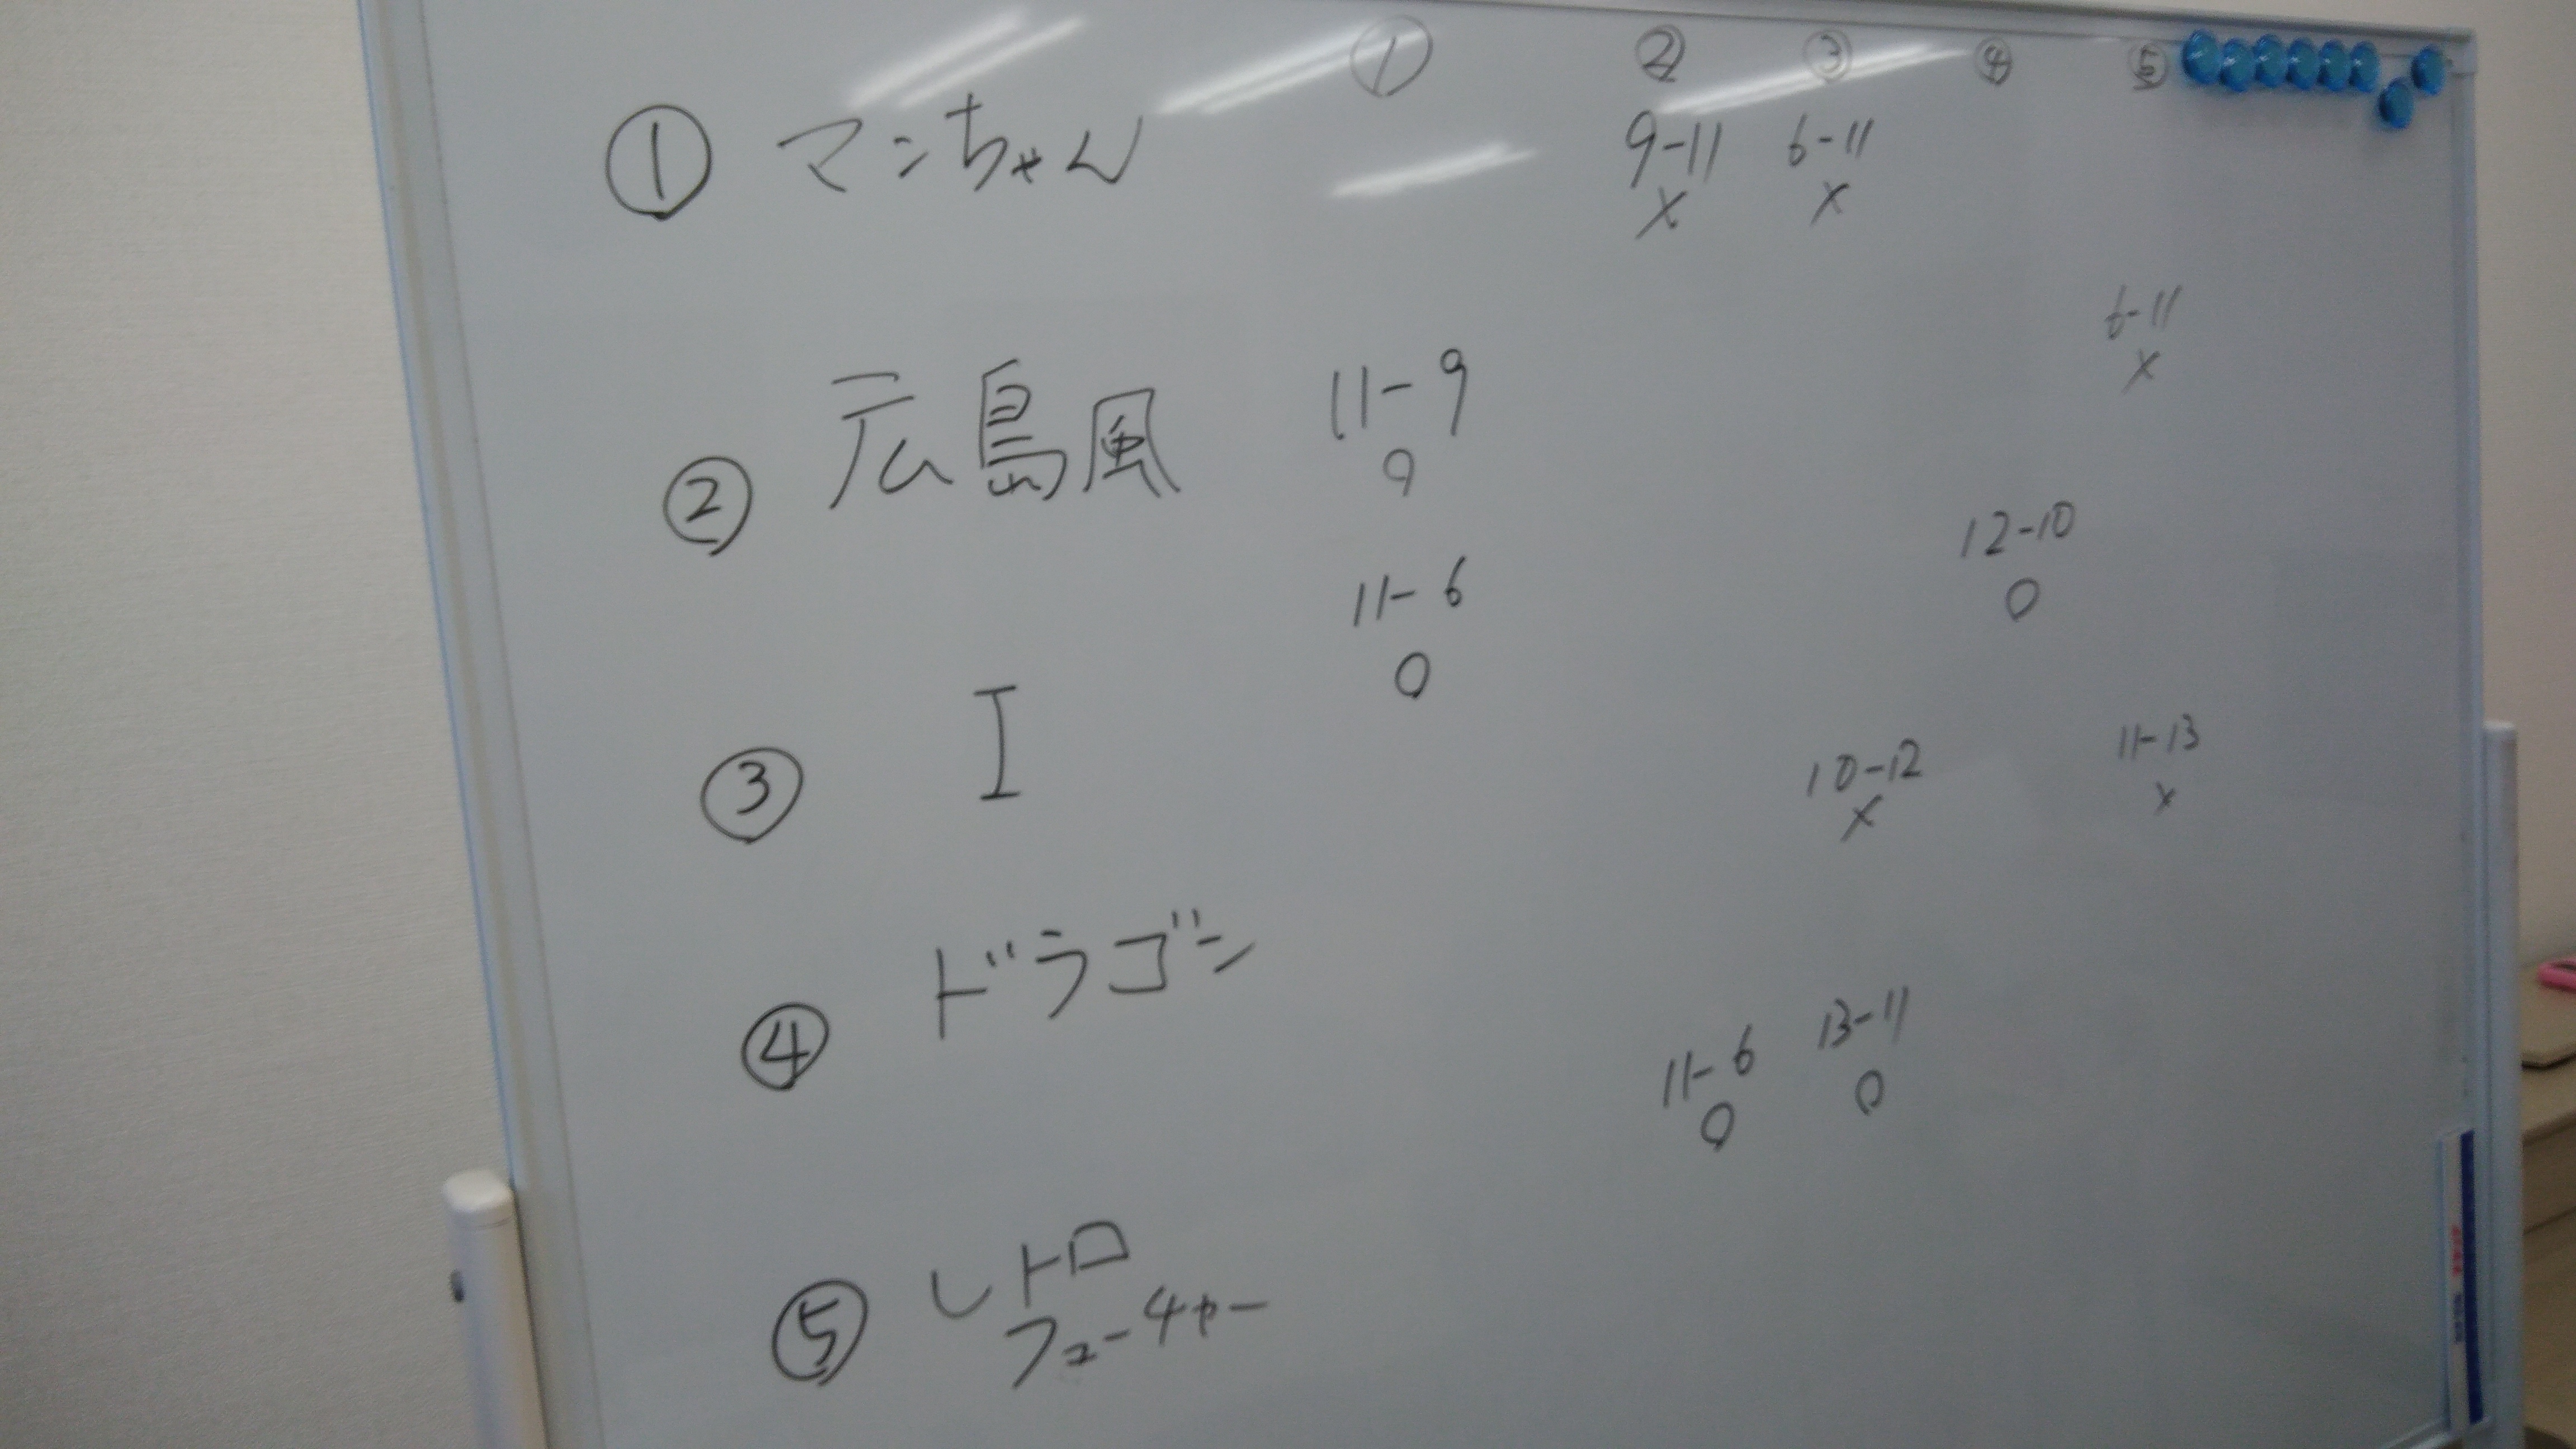 ① ② ③ ④ ⑤
① マンちゃん 9-11 6-11
× ×
6-11
×
② 広島風 11-9
○
12-10
○
11-6
○
③ I 10-12 11-13
× ×
④ ドラゴン
11-6 13-11
○ ○
⑤ レトロ
フューチャー